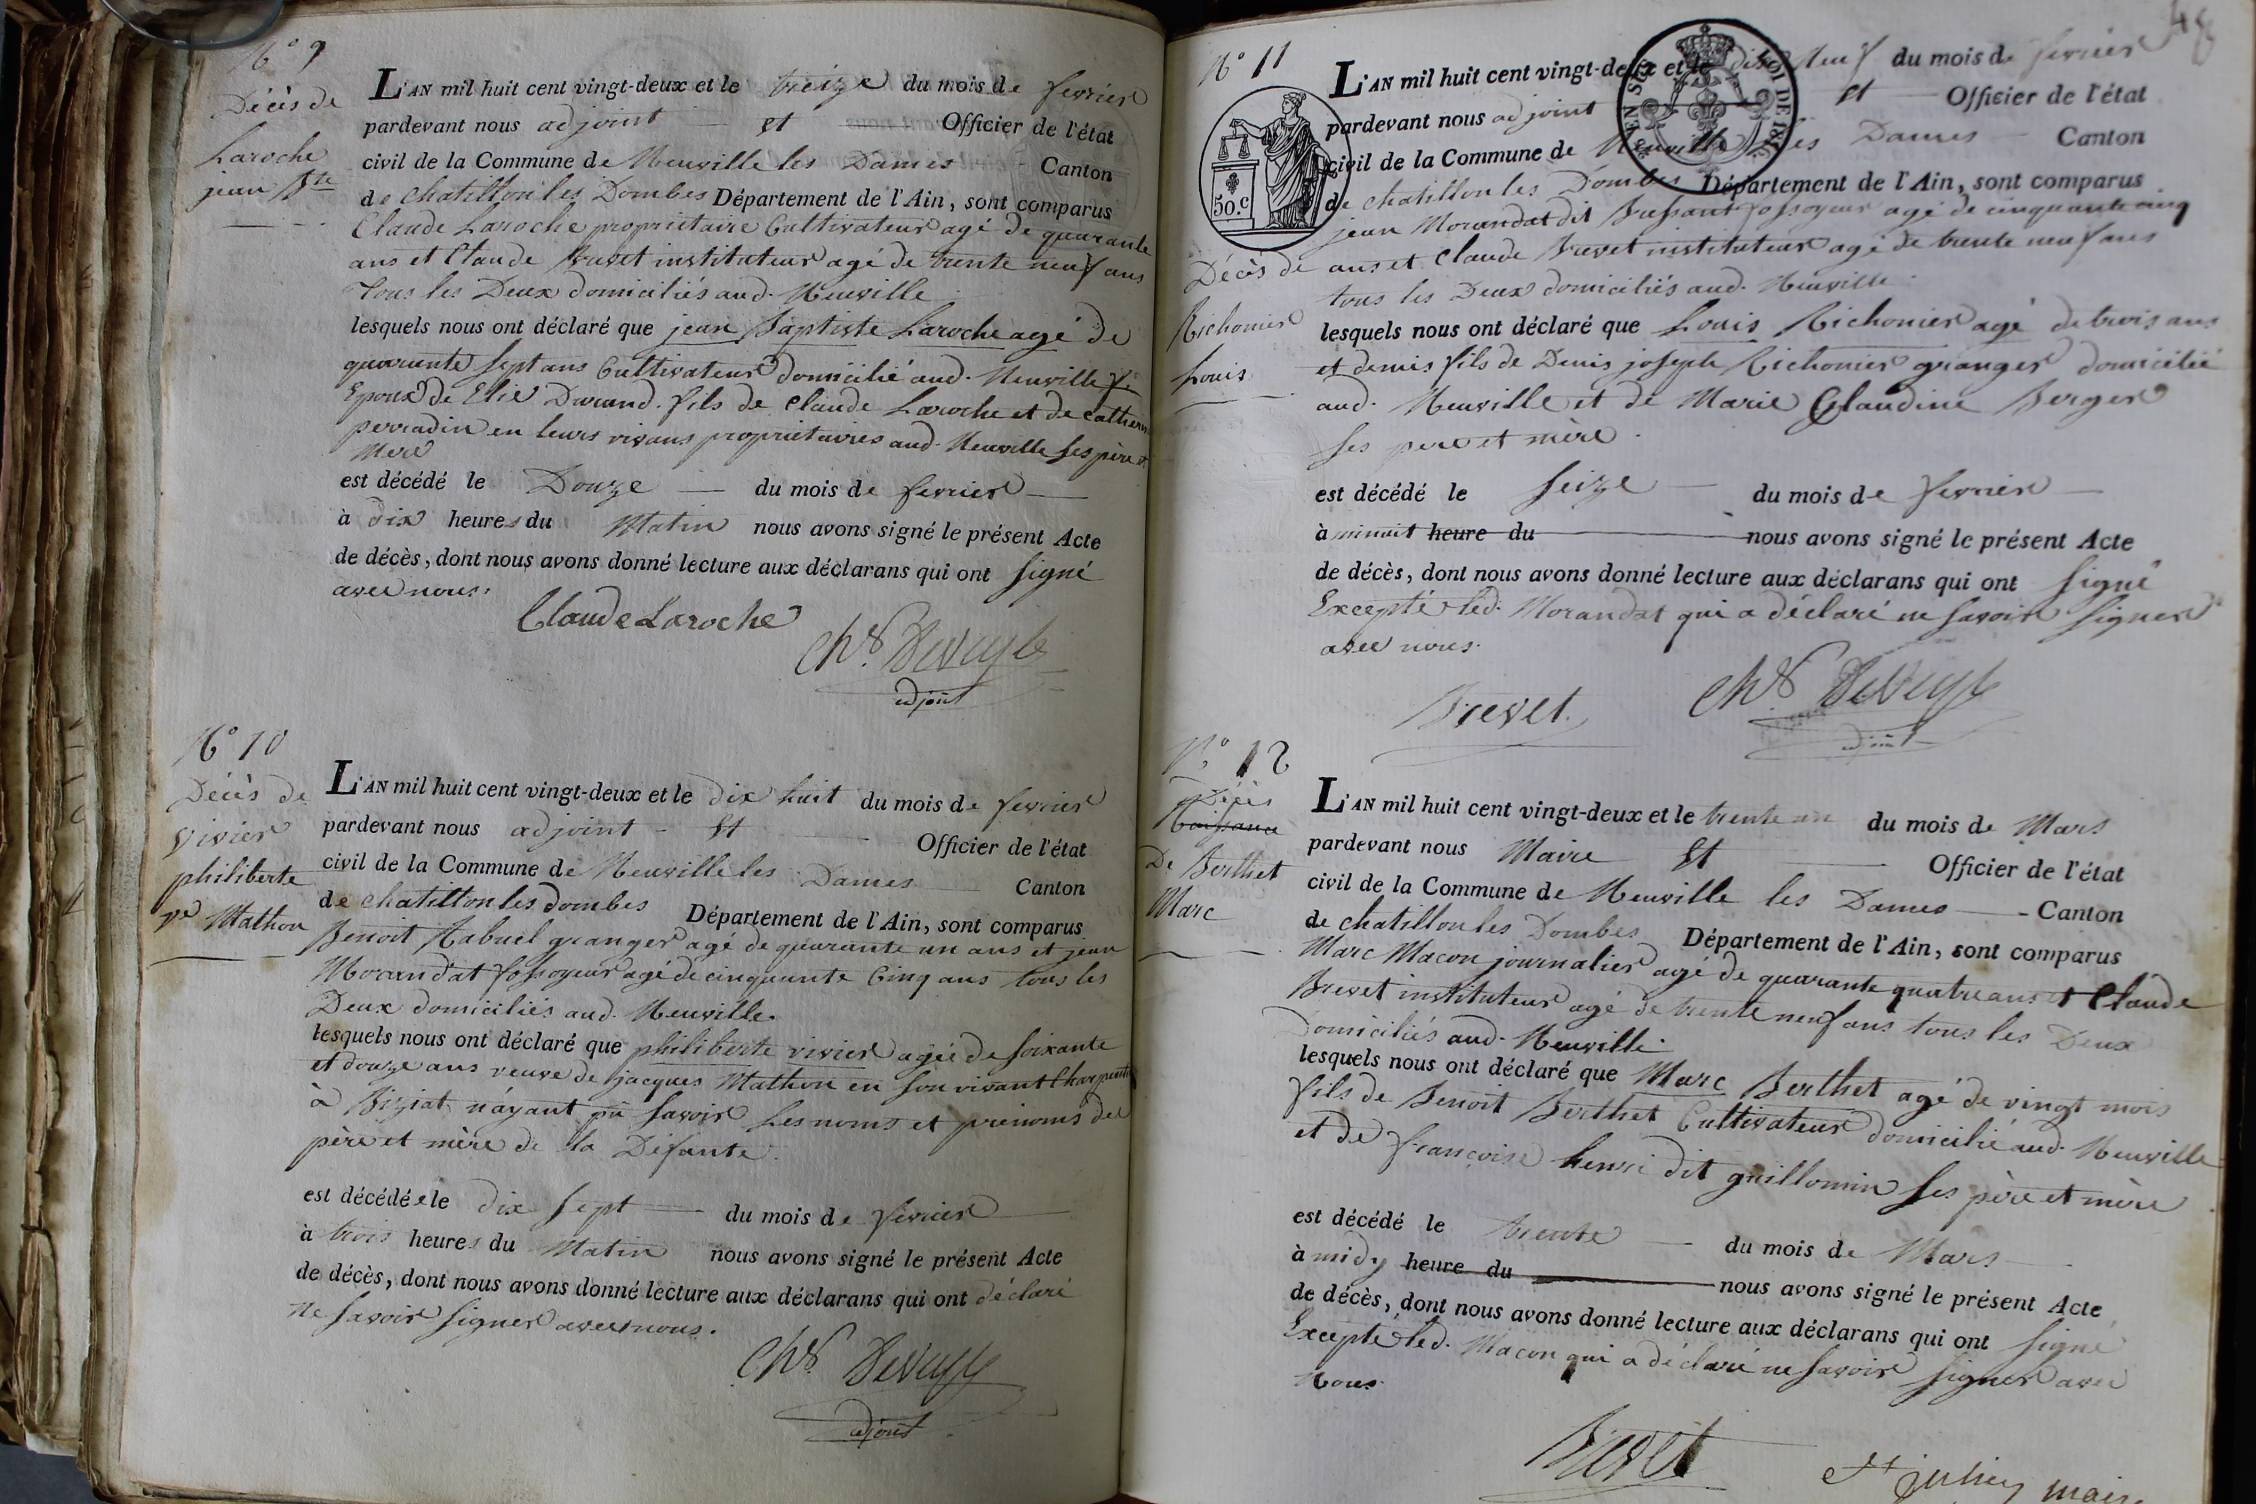 N° 9
Décès de
Laroche
jean Bte
L'AN mil huit cent vingt-deux et le treize du mois de fevrier
pardevant nous adjoint et Officier de l'état
civil de la Commune de Neuville les Dames Canton
de chatillon les Dombes Département de l'Ain, sont comparus
Claude Laroche propriétaire Cultivateur agé de quarante
ans et Claude Brevet instituteur agé de trente neuf ans
tous les Deux domiciliés aud. Neuville
lesquels nous ont déclaré que jean Baptiste Laroche agé de
quarante sept ans Cultivateur domicilié aud. Neuville
Epoux de Elie Durand. fils de Claude Laroche et de Catherine
perradin en leurs vivans propriétaires aud. Neuville ses père et
Mere
est décédé le Douze du mois de fevrier
à dix heures du Matin nous avons signé le présent Acte
de décès, dont nous avons donné lecture aux déclarans qui ont signé
avec nous.
Claude Laroche
Chs Deveyle
adjoint
N° 10
Décès de
Vivier
philiberte
ve Mathon
L'AN mil huit cent vingt-deux et le dix huit du mois de fevrier
pardevant nous adjoint et Officier de l'état
civil de la Commune de Neuville les Dames Canton
de chatillon les dombes Département de l'Ain, sont comparus
Benoit Rabuel granger agé de quarante un ans et jean
Morandat fossoyeur agé de cinquante Cinq ans tous les
Deux domiciliés aud. Neuville.
lesquels nous ont déclaré que philiberte vivier agée de soixante
et douze ans veuve de jacques Mathon en son vivant Charpentier
à Biziat n'ayant pu savoir les noms et prénoms des
père et mère de la Défunte.
est décédée le dix sept du mois de février
à trois heures du Matin nous avons signé le présent Acte
de décès, dont nous avons donné lecture aux déclarans qui ont déclaré
ne savoir signer avec nous.
Chs Deveyle
adjoint
48
N° 11
50.c
ROI DE 1816
Décès de
Richonier
Louis
L'AN mil huit cent vingt-deux et le dix Neuf du mois de fevrier
pardevant nous adjoint et Officier de l'état
civil de la Commune de Neuville les Dames Canton
de chatillon les Dombes Département de l'Ain, sont comparus
jean Morandat dit Bressant fossoyeur agé de cinquante cinq
ans et Claude Brevet instituteur agé de trente neuf ans
tous les Deux domiciliés aud. Neuville.
lesquels nous ont déclaré que Louis Richonier agé de trois ans
et demis fils de Denis joseph Richonier granger domicilié
aud. Neuville et de Marie Claudine Berger
ses pere et mère.
est décédé le seize du mois de fevrier
à minuit heure du nous avons signé le présent Acte
de décès, dont nous avons donné lecture aux déclarans qui ont signé
Excepté led. Morandat qui a déclaré ne savoir signer
avec nous.
Brevet
Chs Deveyle
adjoint
N° 12
Décès
Naissance
De Berthet
Marc
L'AN mil huit cent vingt-deux et le trente un du mois de Mars
pardevant nous Maire et Officier de l'état
civil de la Commune de Neuville les Dames Canton
de chatillon les Dombes Département de l'Ain, sont comparus
Marc Macon journalier agé de quarante quatre ans et Claude
Brevet instituteur agé de trente neuf ans tous les Deux
Domiciliés aud. Neuville.
lesquels nous ont déclaré que Marc Berthet agé de vingt mois
fils de Benoit Berthet Cultivateur domicilié aud. Neuville
et de françoise henri dit guillomin ses père et mère
est décédé le trente du mois de Mars
à midy heure du nous avons signé le présent Acte
de décès, dont nous avons donné lecture aux déclarans qui ont signé
Excepté led. Macon qui a déclaré ne savoir signer avec
Nous.
Brevet
St julien maire